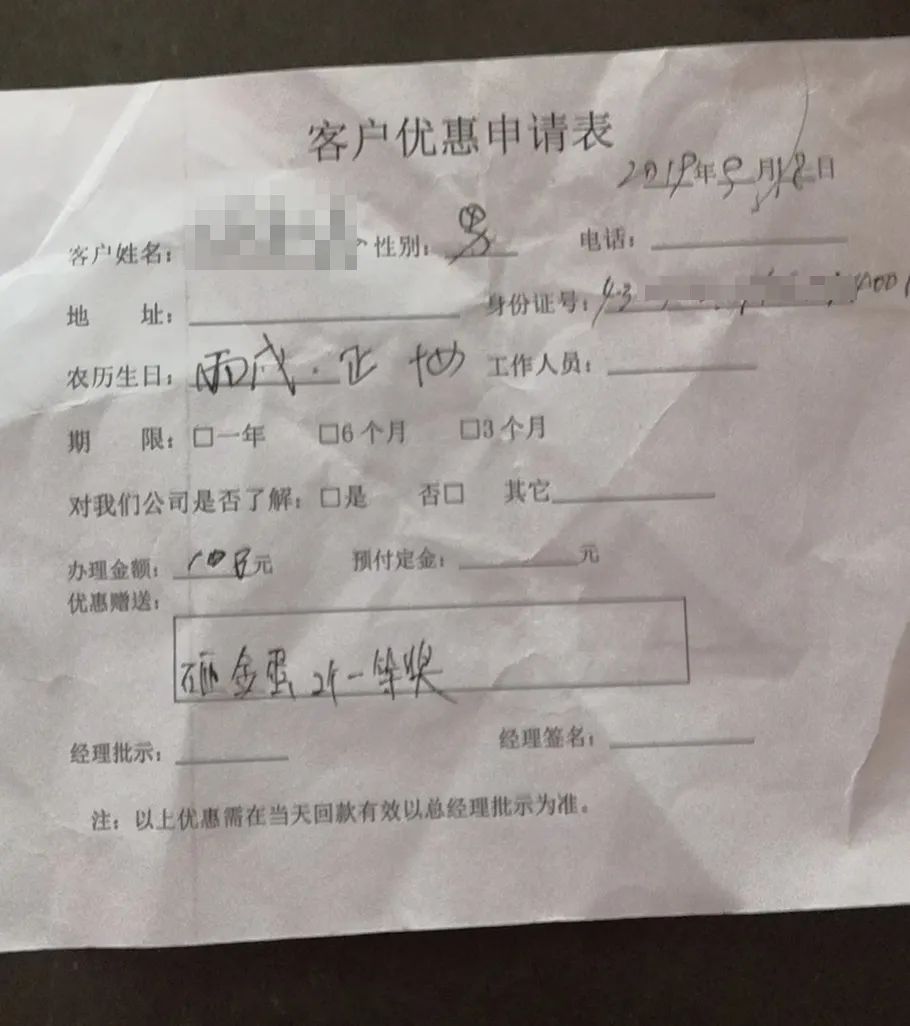 客户优惠申请表
2019年9月18日
客户姓名： 性别：男 电话：
地 址： 身份证号：43
农历生日：丙戌·正 工作人员：
期 限：□一年 □6个月 □3个月
对我们公司是否了解：□是 否□ 其它
办理金额： 元 预付定金： 元
优惠赠送：
砸金蛋 2个一等奖
经理批示： 经理签名：
注：以上优惠需在当天回款有效以总经理批示为准。